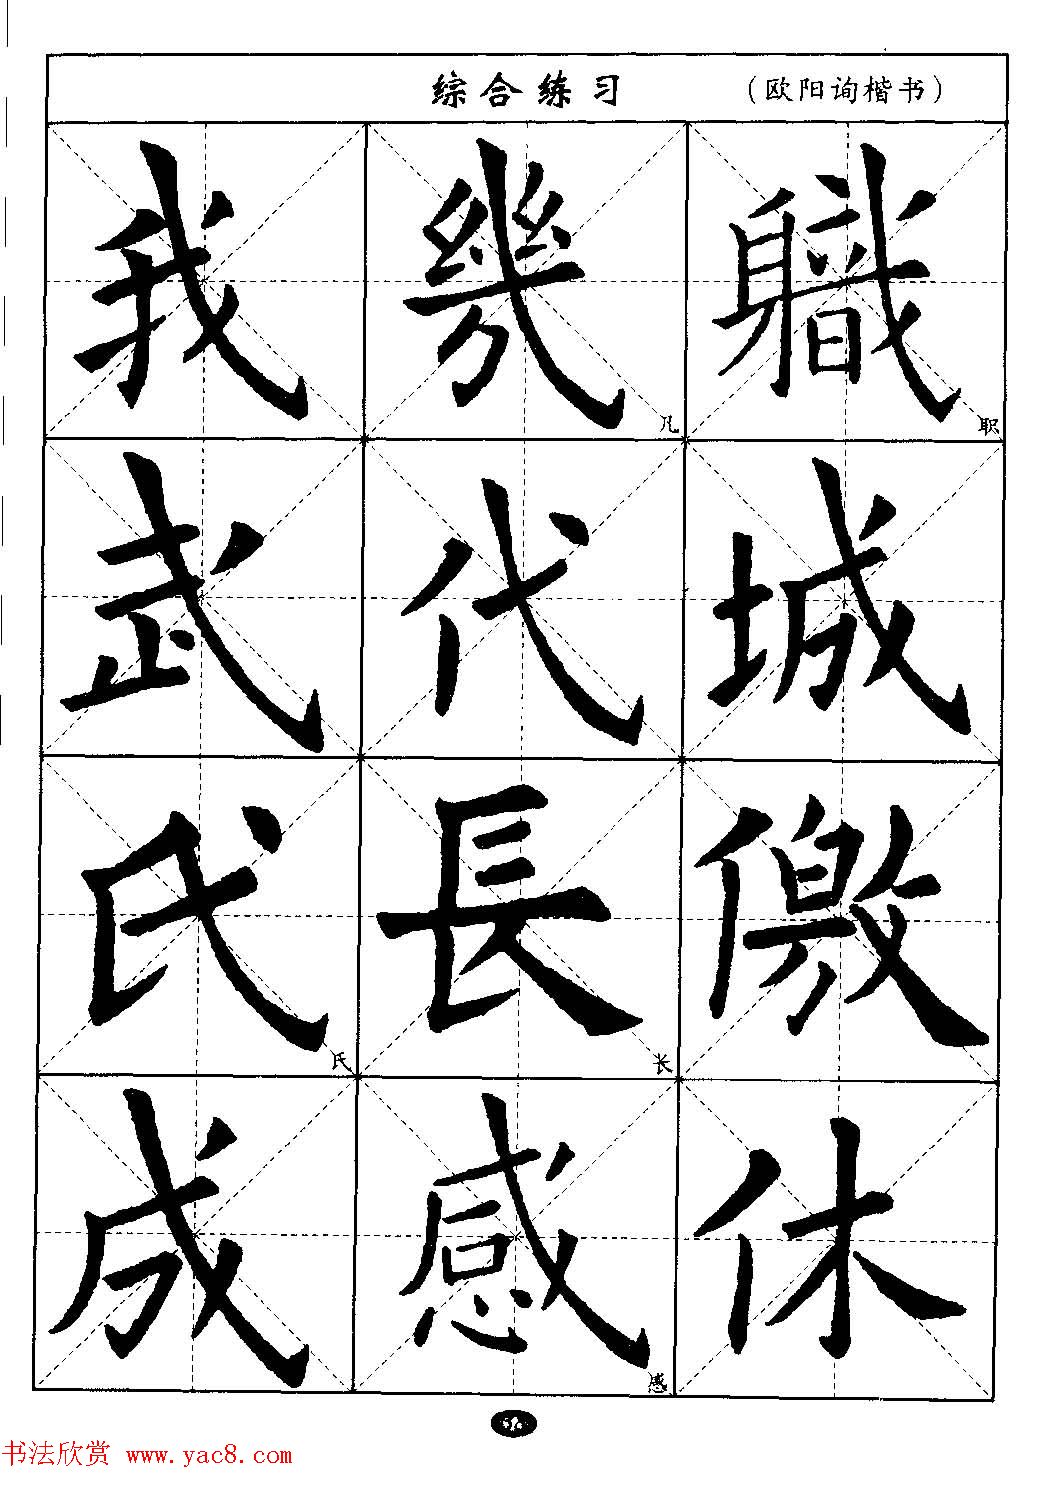 综合练习 (欧阳询楷书)
我 幾 凡 軄 职
武 代 城
氏 氏 長 长 儌
成 感 感 休
书法欣赏 www.yac8.com